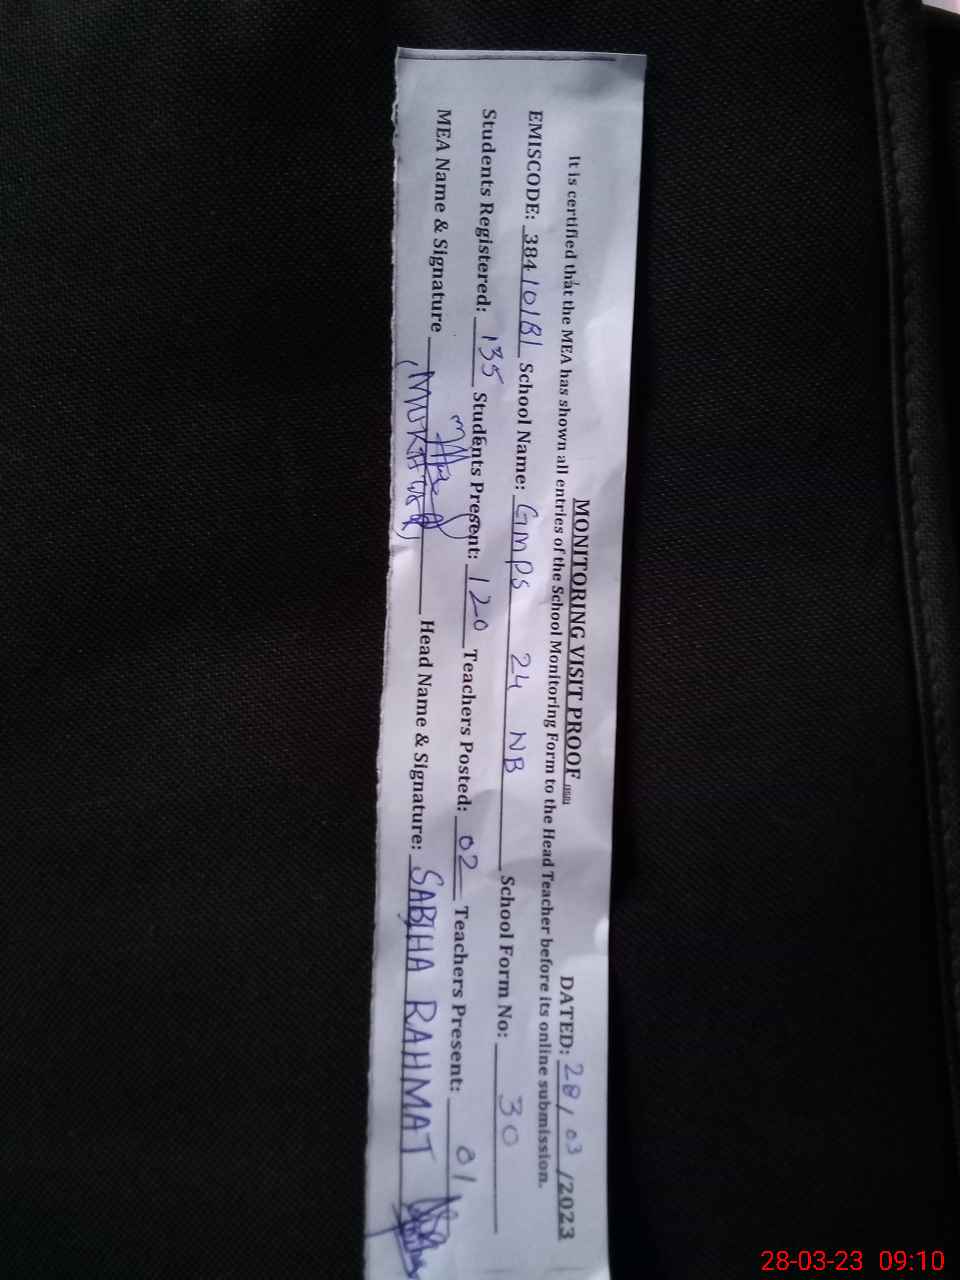 MONITORING VISIT PROOF
DATED: 28/03/2023
It is certified that the MEA has shown all entries of the School Monitoring Form to the Head Teacher before its online submission.
EMISCODE: 38410181 School Name: GMPS 24 NB School Form No: 30
Students Registered: 135 Students Present: 120 Teachers Posted: 02 Teachers Present: 01
MEA Name & Signature Head Name & Signature: SABIHA RAHMAT
28-03-23 09:10